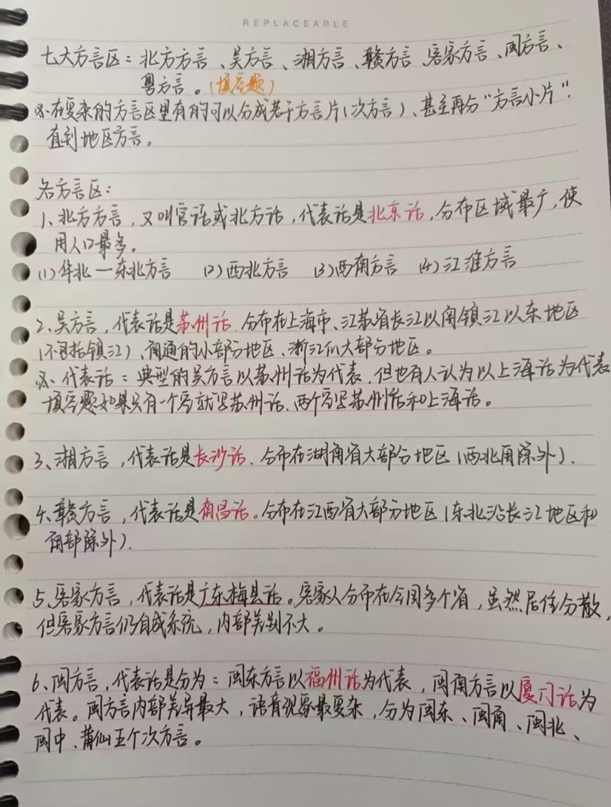 REPLACEABLE
七大方言区：北方方言、吴方言、湘方言、赣方言、客家方言、闽方言、
粤方言。(填空题)
※在复杂的方言区里有的可以分成若干方言片(次方言)、甚至再分“方言小片”.
直到地区方言。
各方言区：
1、北方方言，又叫官话或北方话，代表话是北京话，分布区域最广，使
用人口最多。
(1)华北—东北方言 (2)西北方言 (3)西南方言 (4)江淮方言
2、吴方言，代表话是苏州话，分布在上海市、江苏省长江以南镇江以东地区
(不包括镇江)、南通的小部分地区、浙江的大部分地区。
※代表话：典型的吴方言以苏州话为代表，但也有人认为以上海话为代表
填空题如果只有一个空就写苏州话，两个空写苏州话和上海话。
3、湘方言，代表话是长沙话，分布在湖南省大部分地区(西北角除外).
4、赣方言，代表话是南昌话。分布在江西省大部分地区(东北沿长江地区和
南部除外).
5、客家方言，代表话是广东梅县话。客家人分布在全国多个省，虽然居住分散，
但客家方言仍自成系统，内部差别不大。
6、闽方言，代表话是分为：闽东方言以福州话为代表，闽南方言以厦门话为
代表。闽方言内部差异最大，语音现象最复杂，分为闽东、闽南、闽北、
闽中、莆仙五个次方言。